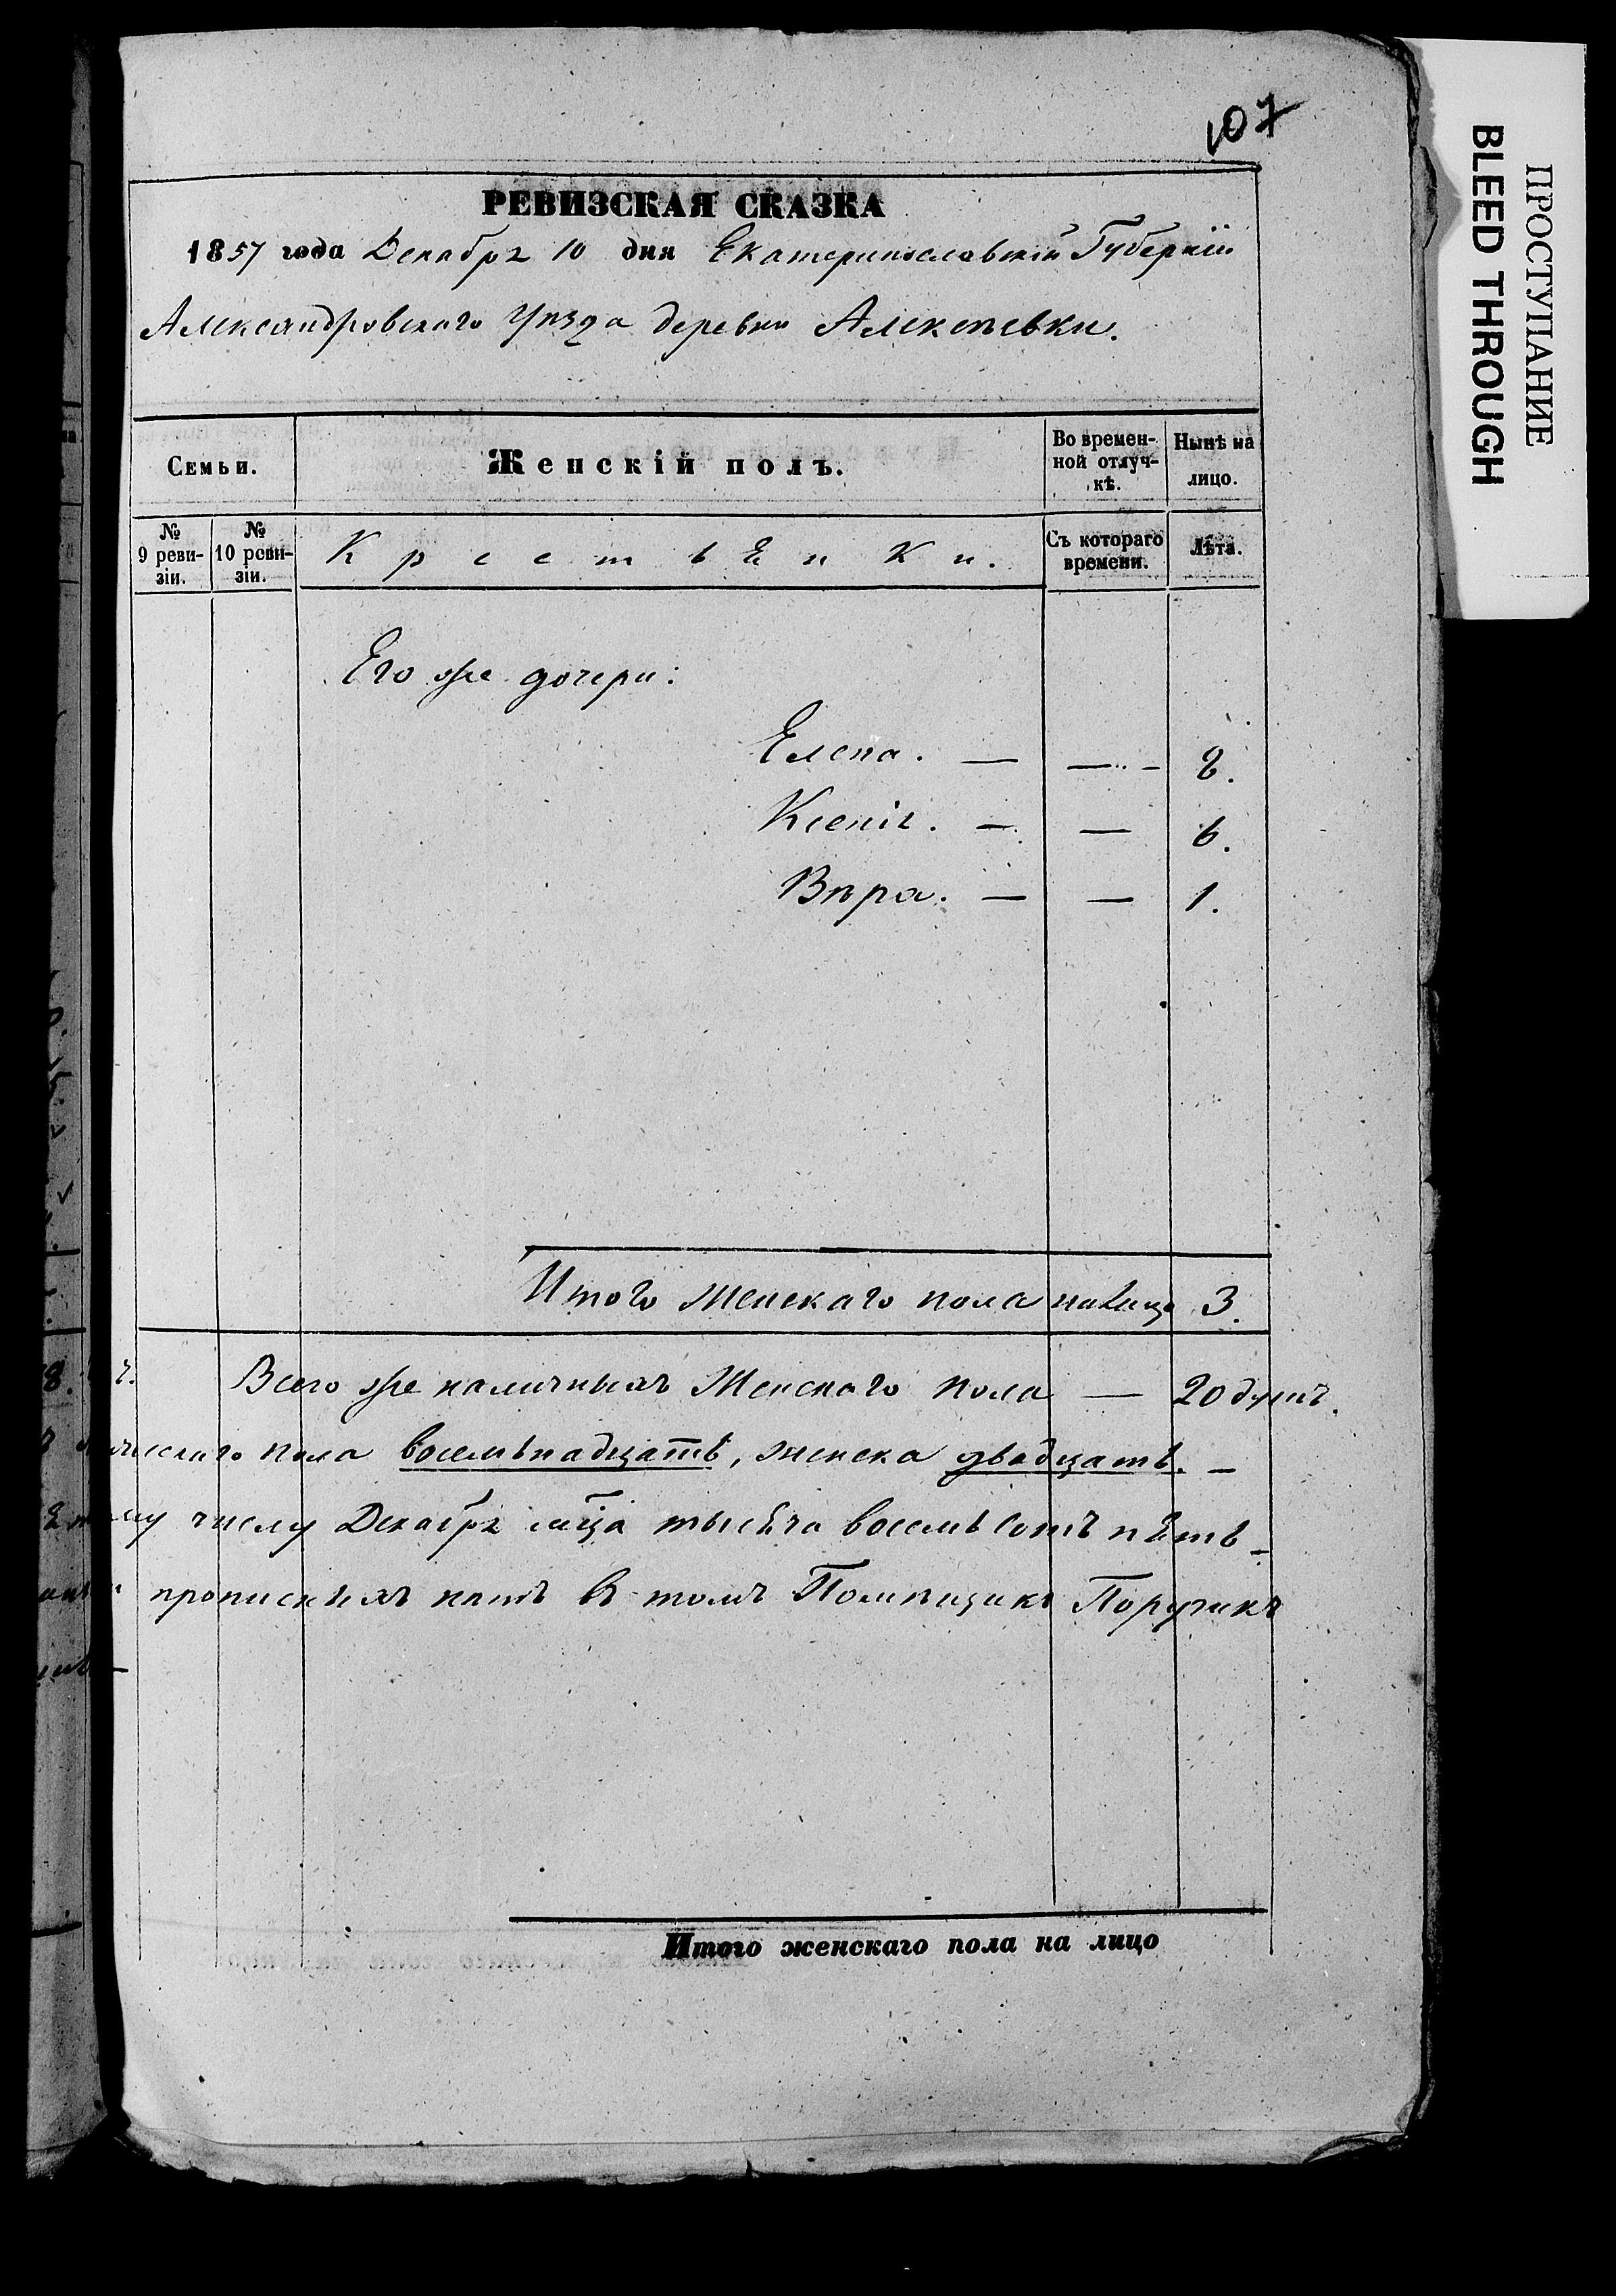 107
РЕВИЗСКАЯ СКАЗКА
1857 года Декабря 10 дня Екатеринославской Губерніи
Александровскаго Уѣзда деревни Алексѣевки.
Семьи.
Женскій полъ.
Во времен-
ной отлуч-
кѣ.
Нынѣ на
лицо.
№
9 реви-
зіи.
№
10 реви-
зіи.
Крестьянки.
Съ котораго
времени.
Лѣта.
Его же дочери:
Елена. — — 8.
Ксенія. — — 6.
Вѣра. — — 1.
Итого женскаго пола на лицо 3.
Всего же наличныхъ Женскаго пола — 20 душъ.
пола восемьнадцать, женска двадцать. —
числу Декабря мца тысяча восемь сотъ пять-
прописныхъ нѣтъ въ томъ Помѣщикъ Поручикъ
Итого женскаго пола на лицо
ПРОСТУПАНИЕ
BLEED THROUGH